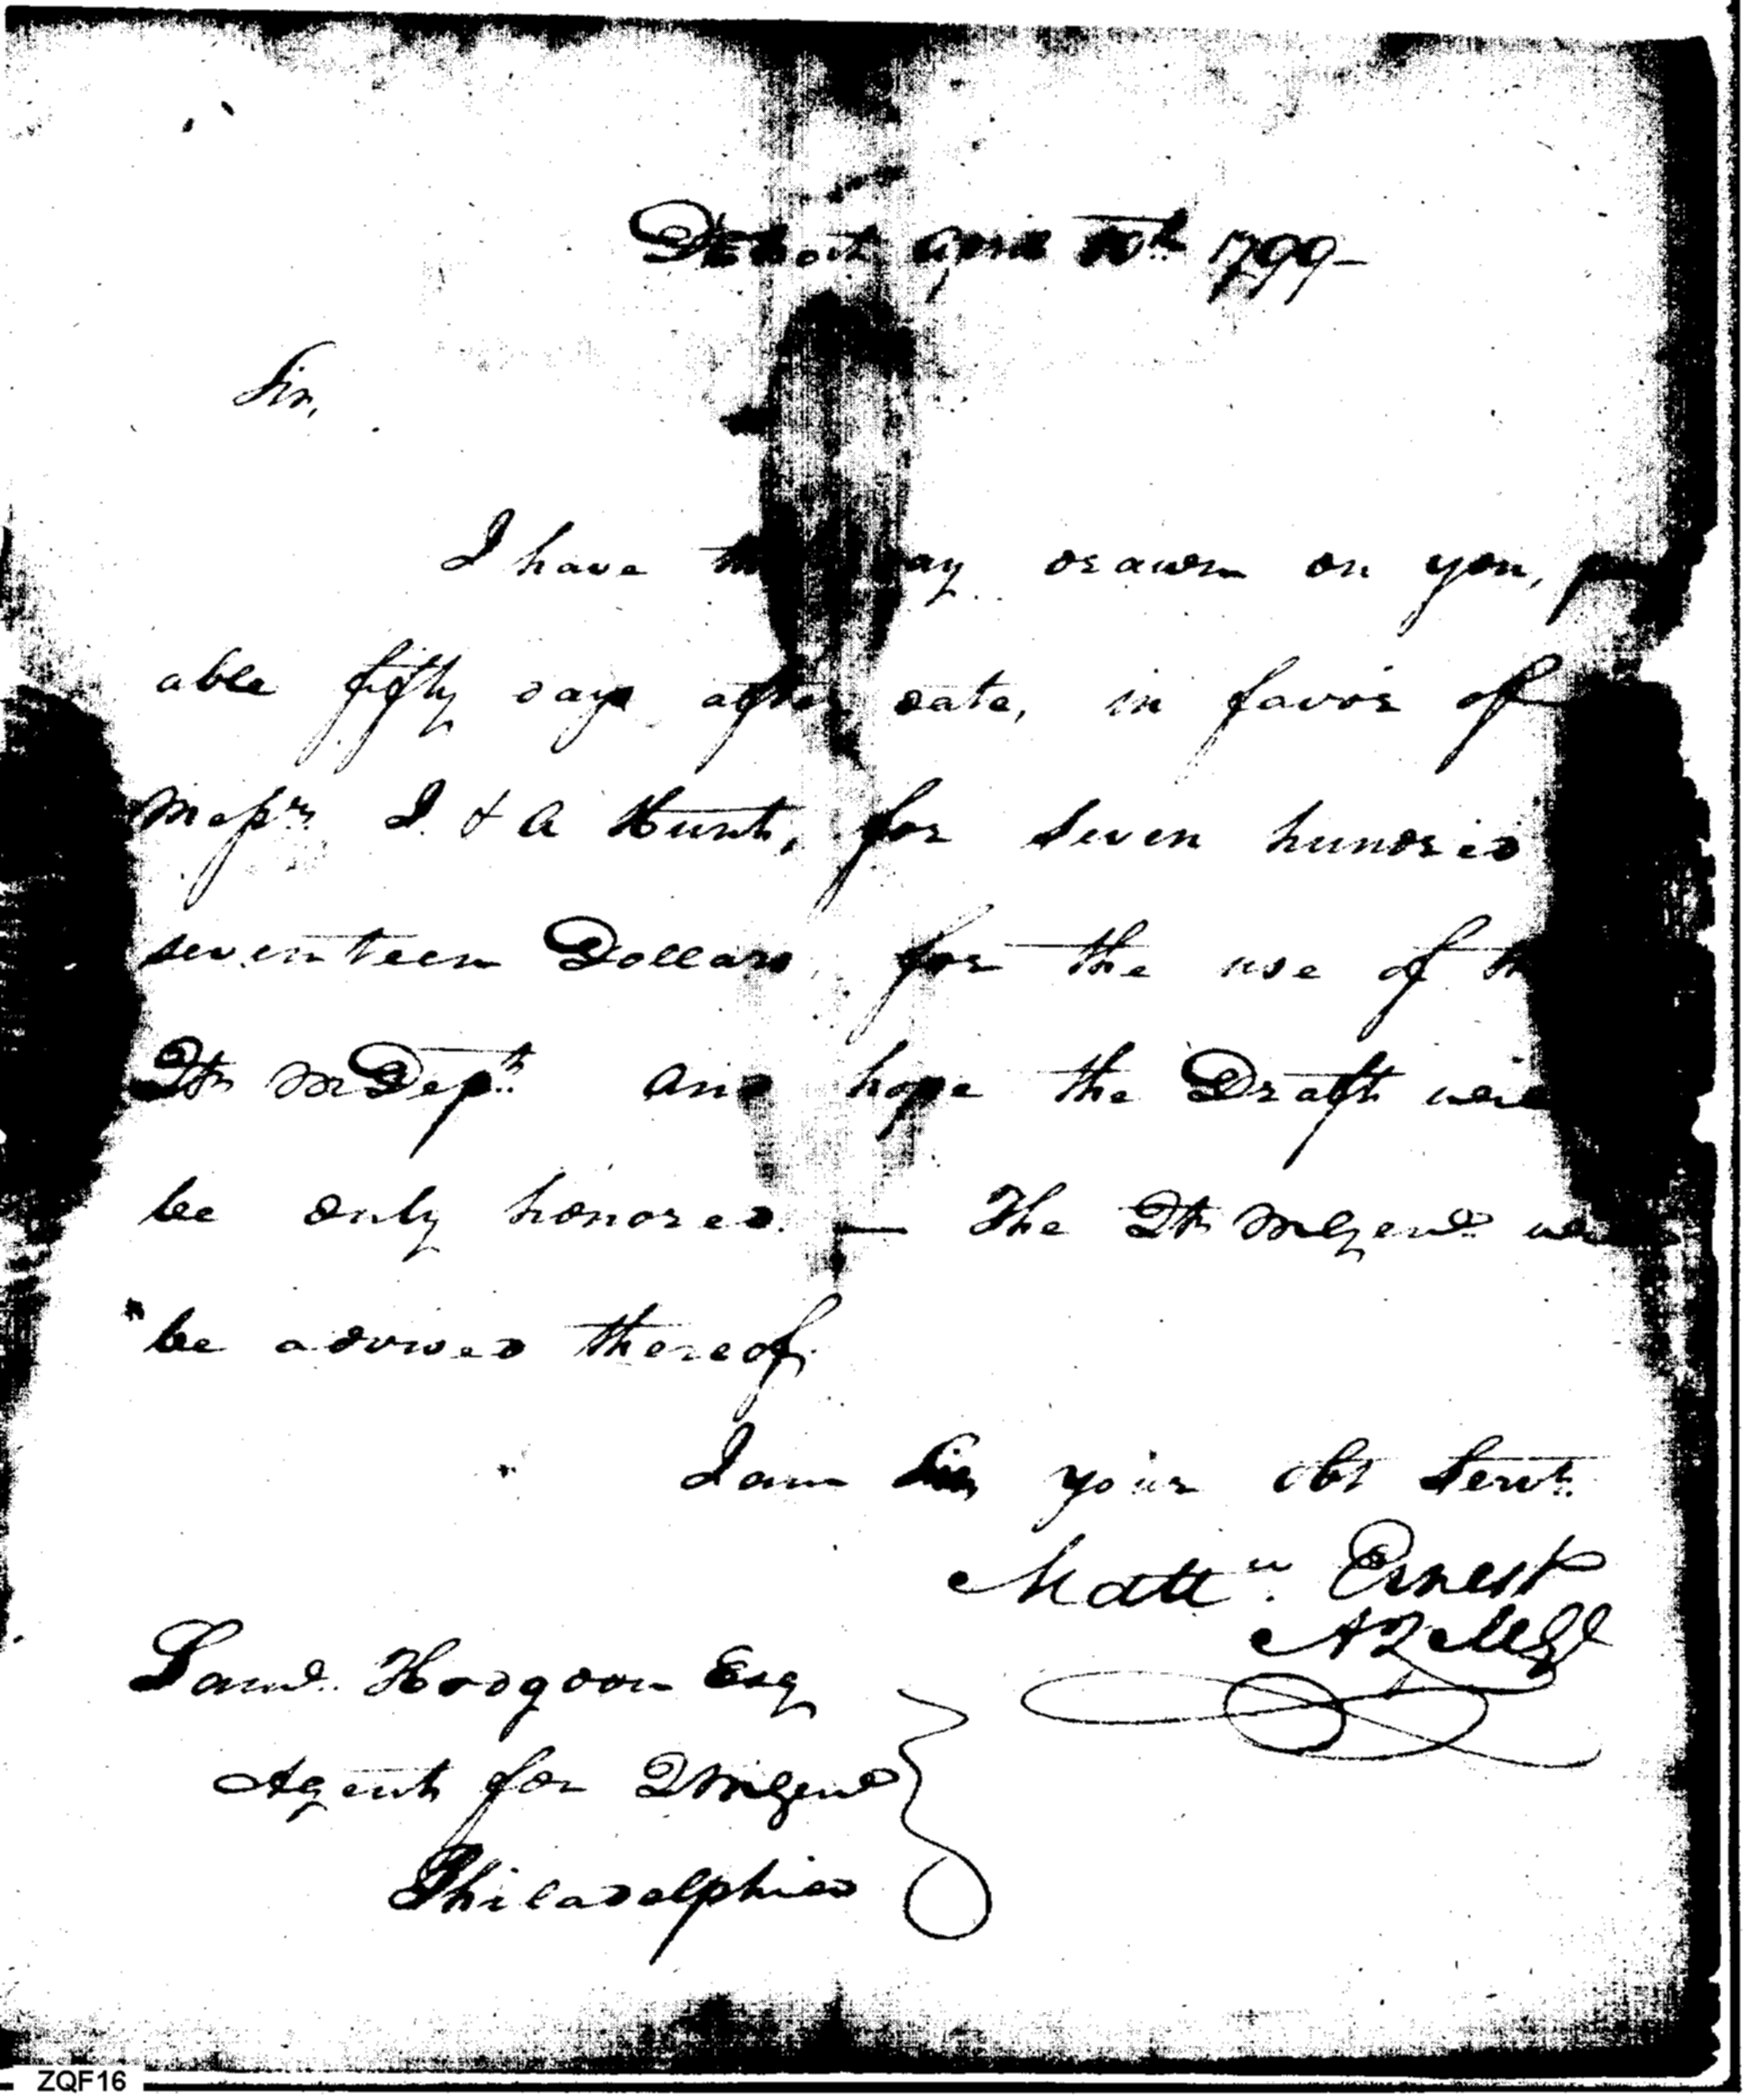 Detroit April 10th 1799-
Sir,
I have this day drawn on you, pay
able fifty days after date, in favor of
Messrs. I. & A Hunt, for seven hundred
seventeen Dollars, for the use of the
Qtr M Dept. and hope the Draft will
be duly honored. — The Qtr M Genl. will
be advised thereof.
I am Sir, your obt Servt.
Matt.w Ernest
AQMGl
Saml. Hodgdon Esq
Agent for QMGenl
Philadelphia
ZQF16